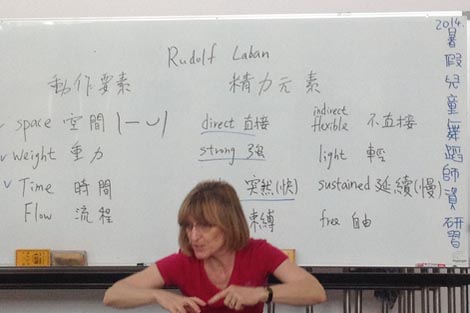 Rudolf Laban
動作要素 精力元素
space 空間 direct 直接 indirect flexible 不直接
weight 重力 strong 強 light 輕
Time 時間 突然(快) sustained 延續(慢)
Flow 流程 束縛 free 自由
2014.暑假兒童舞蹈師資研習